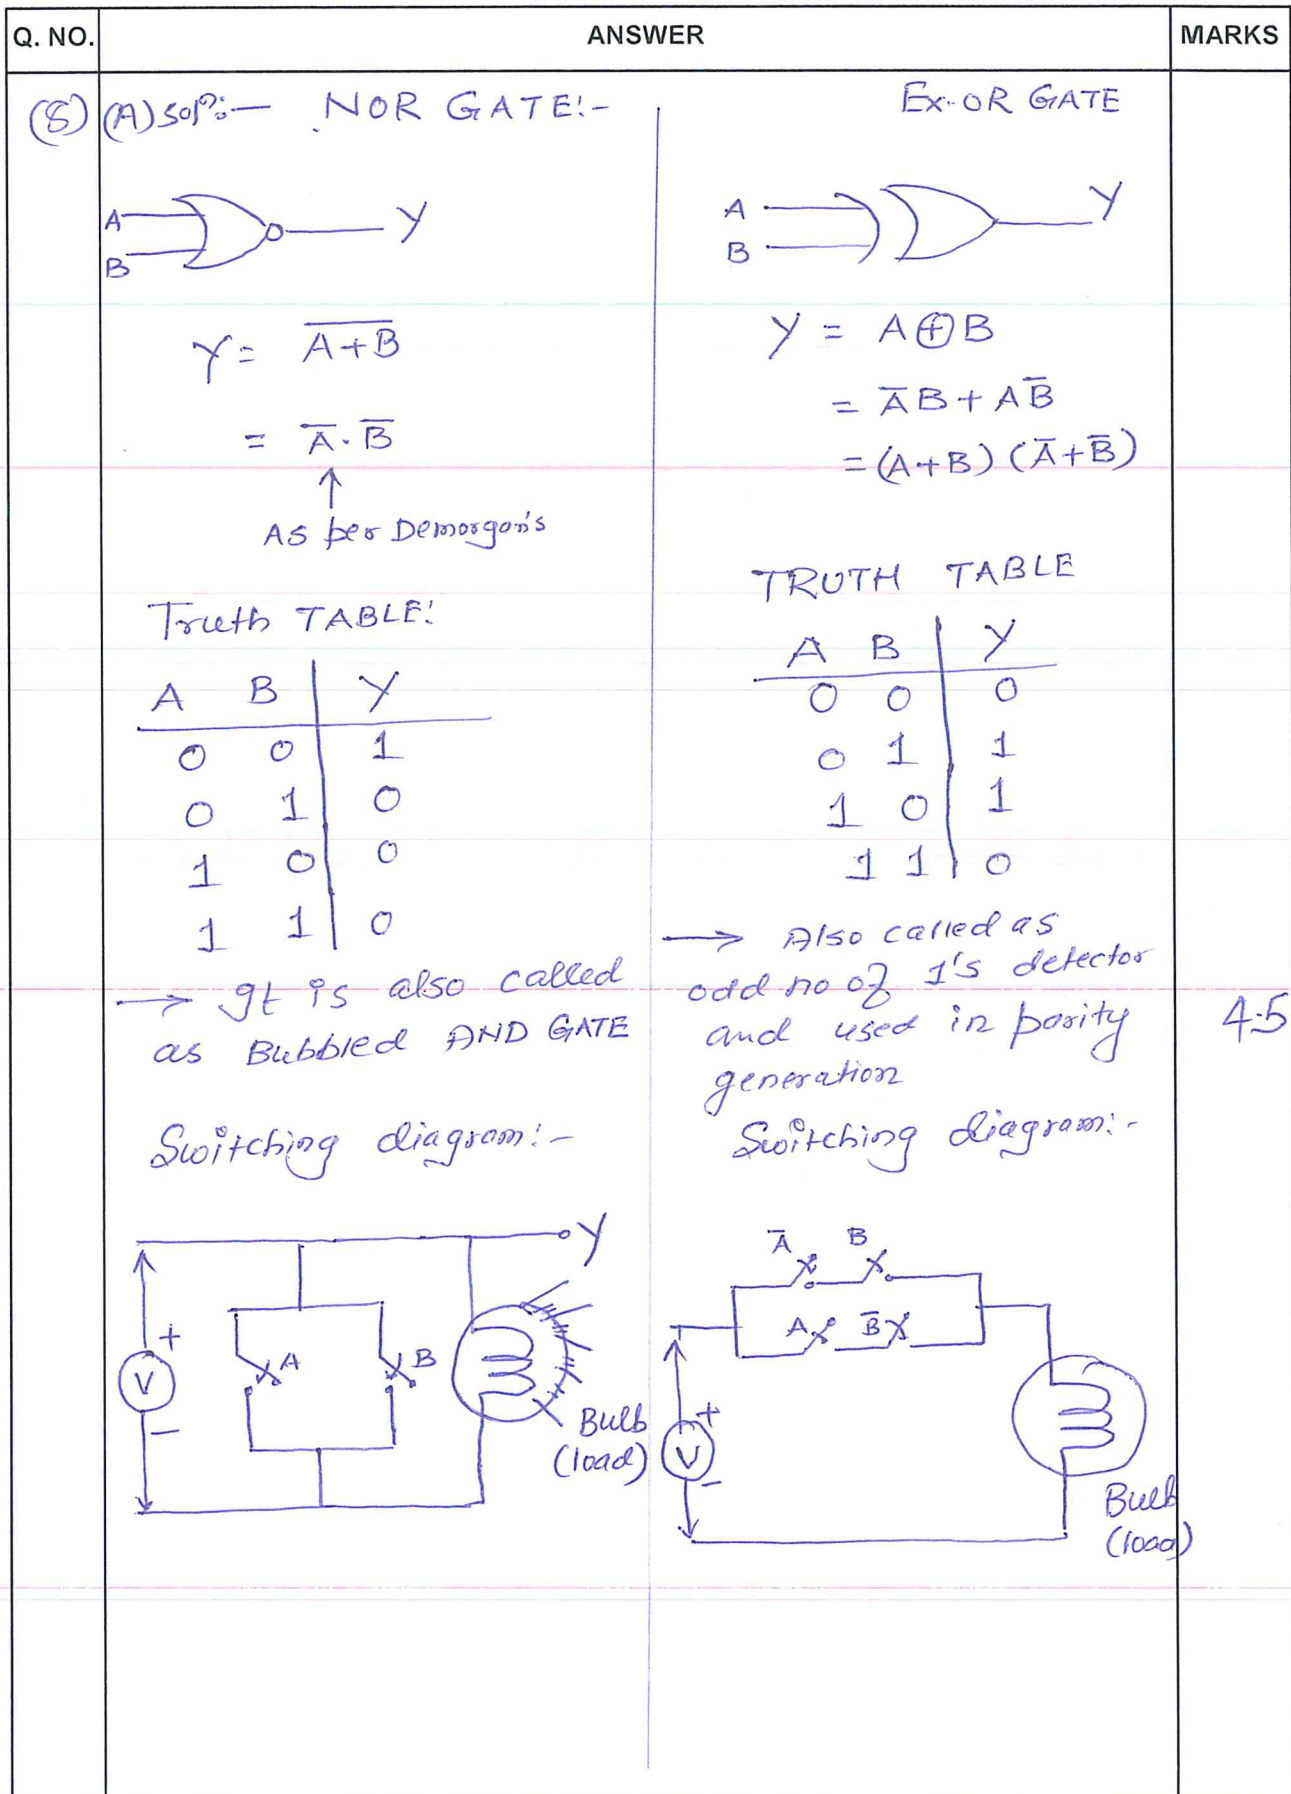 Q. NO. ANSWER MARKS
(8) (A) Solⁿ:— NOR GATE:-
A
B
Y
Y = \overline{A+B}
= \overline{A}.\overline{B}
↑
As per Demorgan's
Truth TABLE:
A B Y
0 0 1
0 1 0
1 0 0
1 1 0
→ It is also called
as Bubbled AND GATE
Switching diagram:-
Y
+
V
-
A
B
Bulb
(load)
Ex-OR GATE
A
B
Y
Y = A⊕B
= \overline{A}B+A\overline{B}
=(A+B)(\overline{A}+\overline{B})
TRUTH TABLE
A B Y
0 0 0
0 1 1
1 0 1
1 1 0
→ Also called as
odd no of 1's detector
and used in parity
generation
Switching diagram:-
\overline{A} B
A \overline{B}
+
V
-
Bulb
(load)
4.5